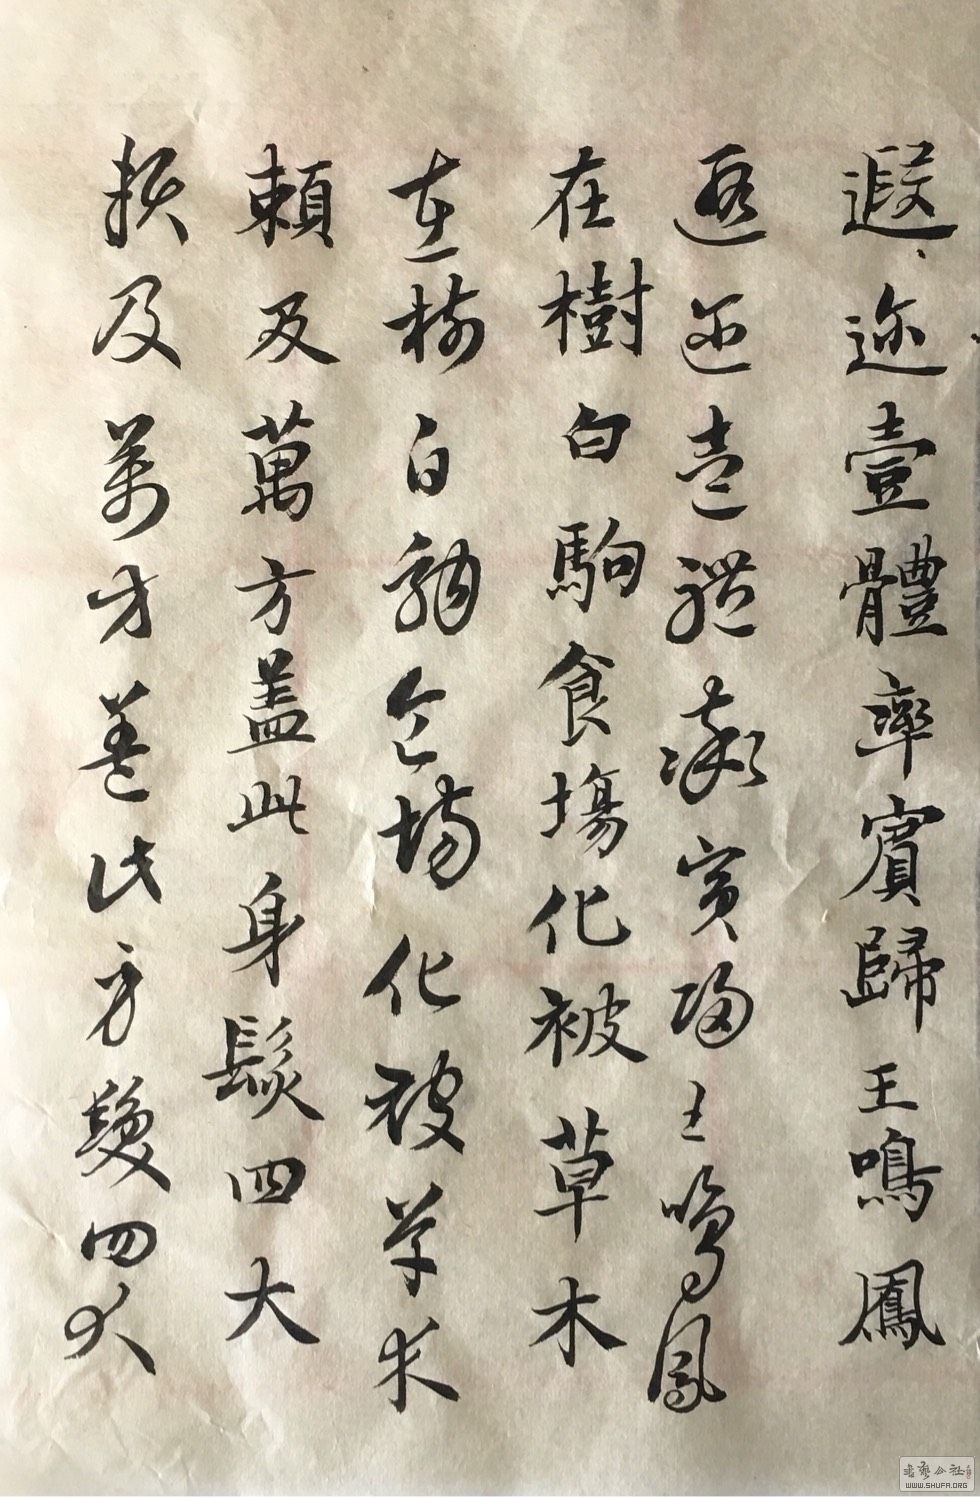 遐迩壹體率賓歸王鳴鳳
遐迩壹體率賓歸王鳴鳳
在樹白駒食場化被草木
在樹白駒食場化被草木
賴及萬方盖此身髮四大
賴及萬方盖此身髮四大
WWW.SHUFA.ORG